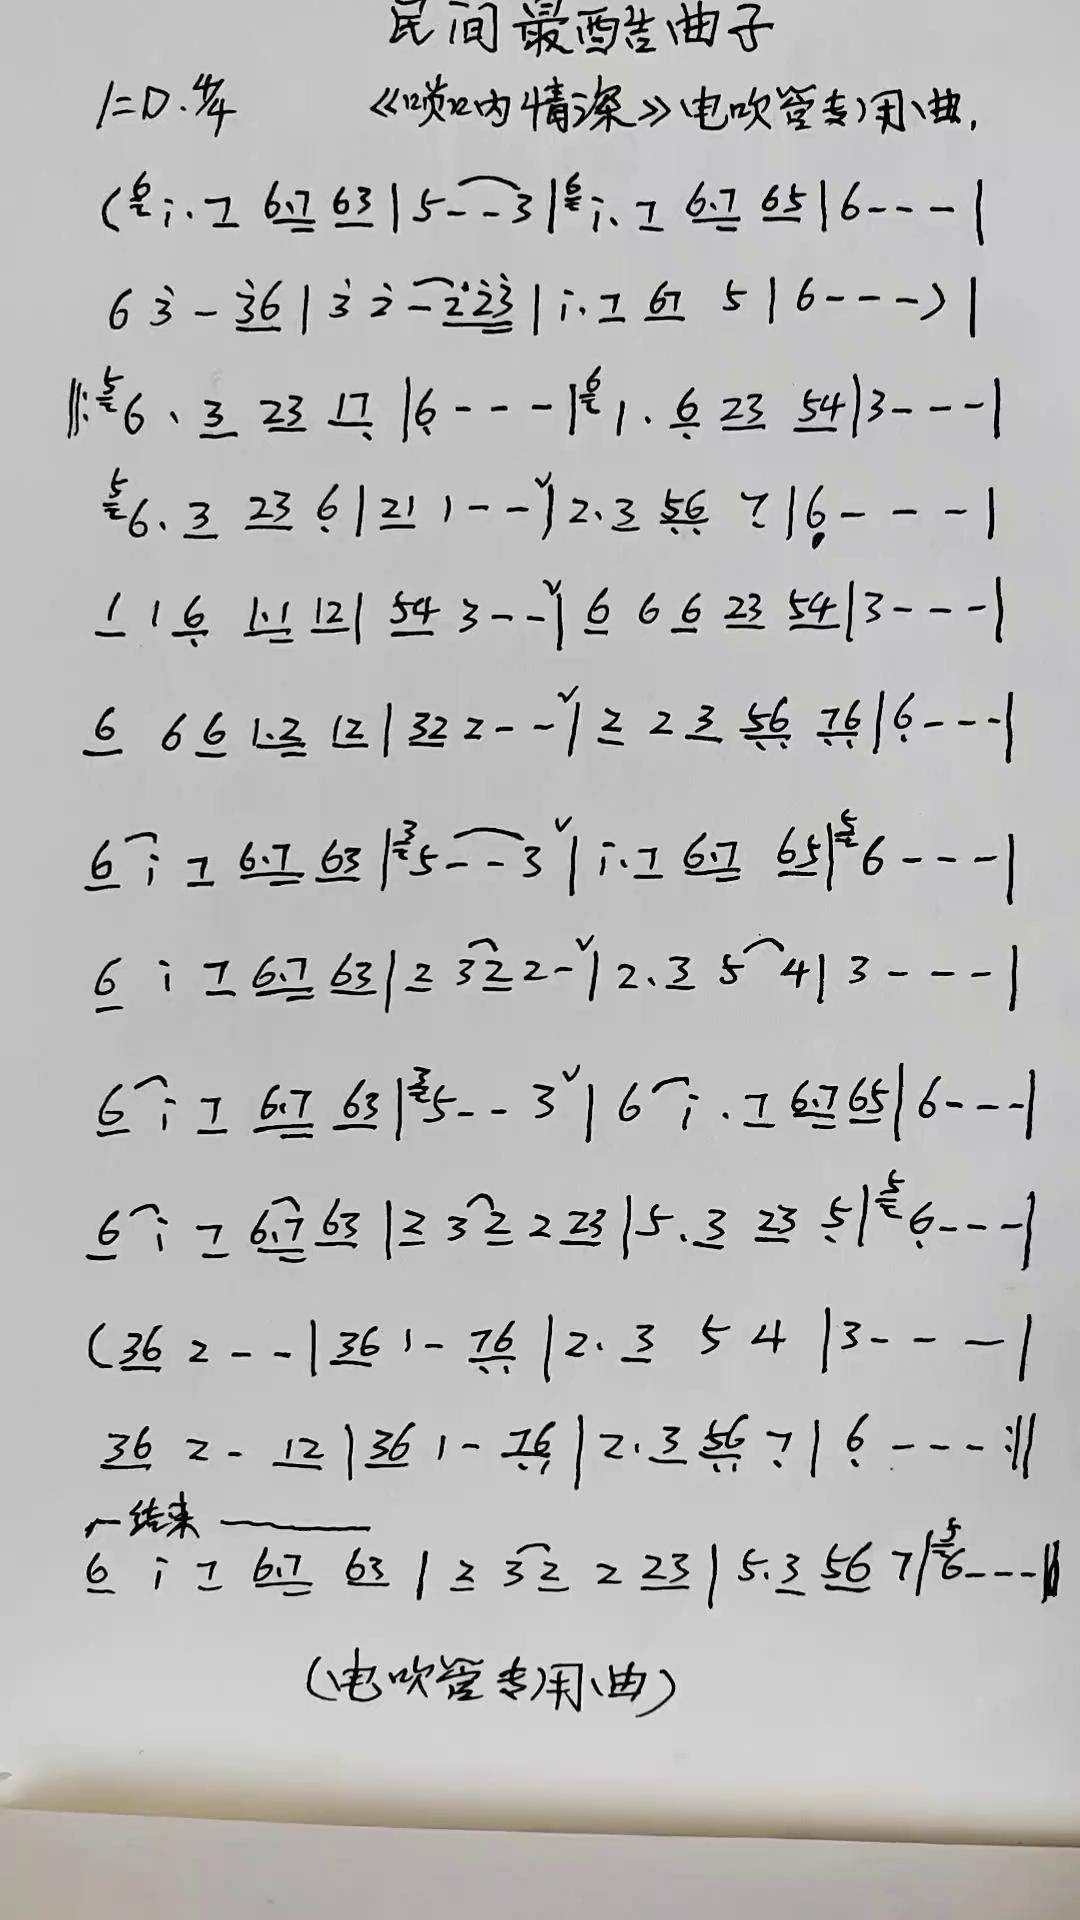 民间最酷曲子
1=D.4/4 《唢呐情深》电吹管专用曲.
(6 i.7 6.7 63|5--3|6 i.7 6.7 65|6---|
6 3-36|3 2-223|i.7 67 5|6---)|
‖:5 6.3 23 17|6---|6 1.6 23 54|3---|
5 6.3 23 6|21 1--∨|2.3 56 7|6---|
1 1 6 1.1 12|54 3--∨|6 6 6 23 54|3---|
6 6 6 1.2 12|32 2--∨|2 2 3 56 76|6---|
6 i 7 6.7 63|3 5--3∨|i.7 6.7 65|5 6---|
6 i 7 6.7 63|2 32 2-∨|2.3 5 4|3---|
6 i 7 6.7 63|3 5--3∨|6 i.7 6.7 65|6---|
6 i 7 6.7 63|2 32 2 23|5.3 23 5|5 6---|
(36 2--|36 1-76|2.3 5 4|3---|
36 2-12|36 1-76|2.3 56 7|6---:‖
结束
6 i 7 6.7 63|2 32 2 23|5.3 56 7|5 6---‖
(电吹管专用曲)